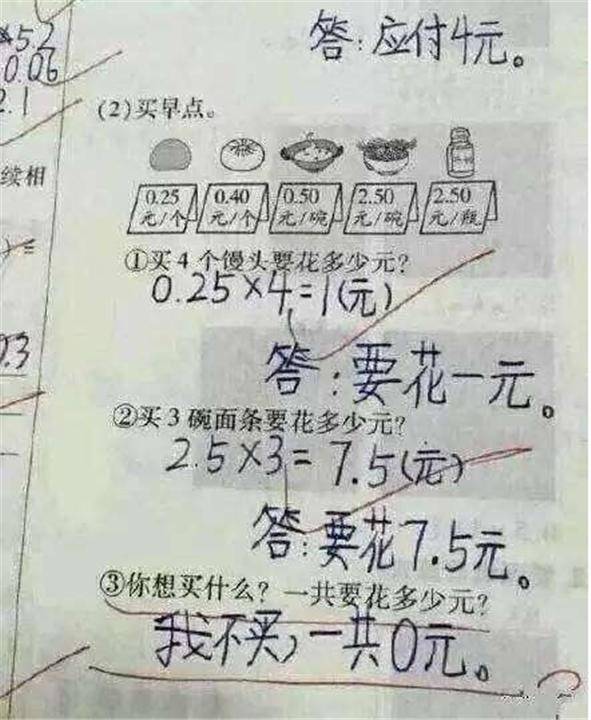 答:应付4元。
5.2
0.06
2.1
(2)买早点。
续相
0.25 0.40 0.50 2.50 2.50
元/个 元/个 元/碗 元/碗 元/瓶
①买4个馒头要花多少元?
0.25×4=1(元)
0.3
答:要花一元。
②买3碗面条要花多少元?
2.5×3=7.5(元)
答:要花7.5元。
③你想买什么?一共要花多少元?
我不买,一共0元。